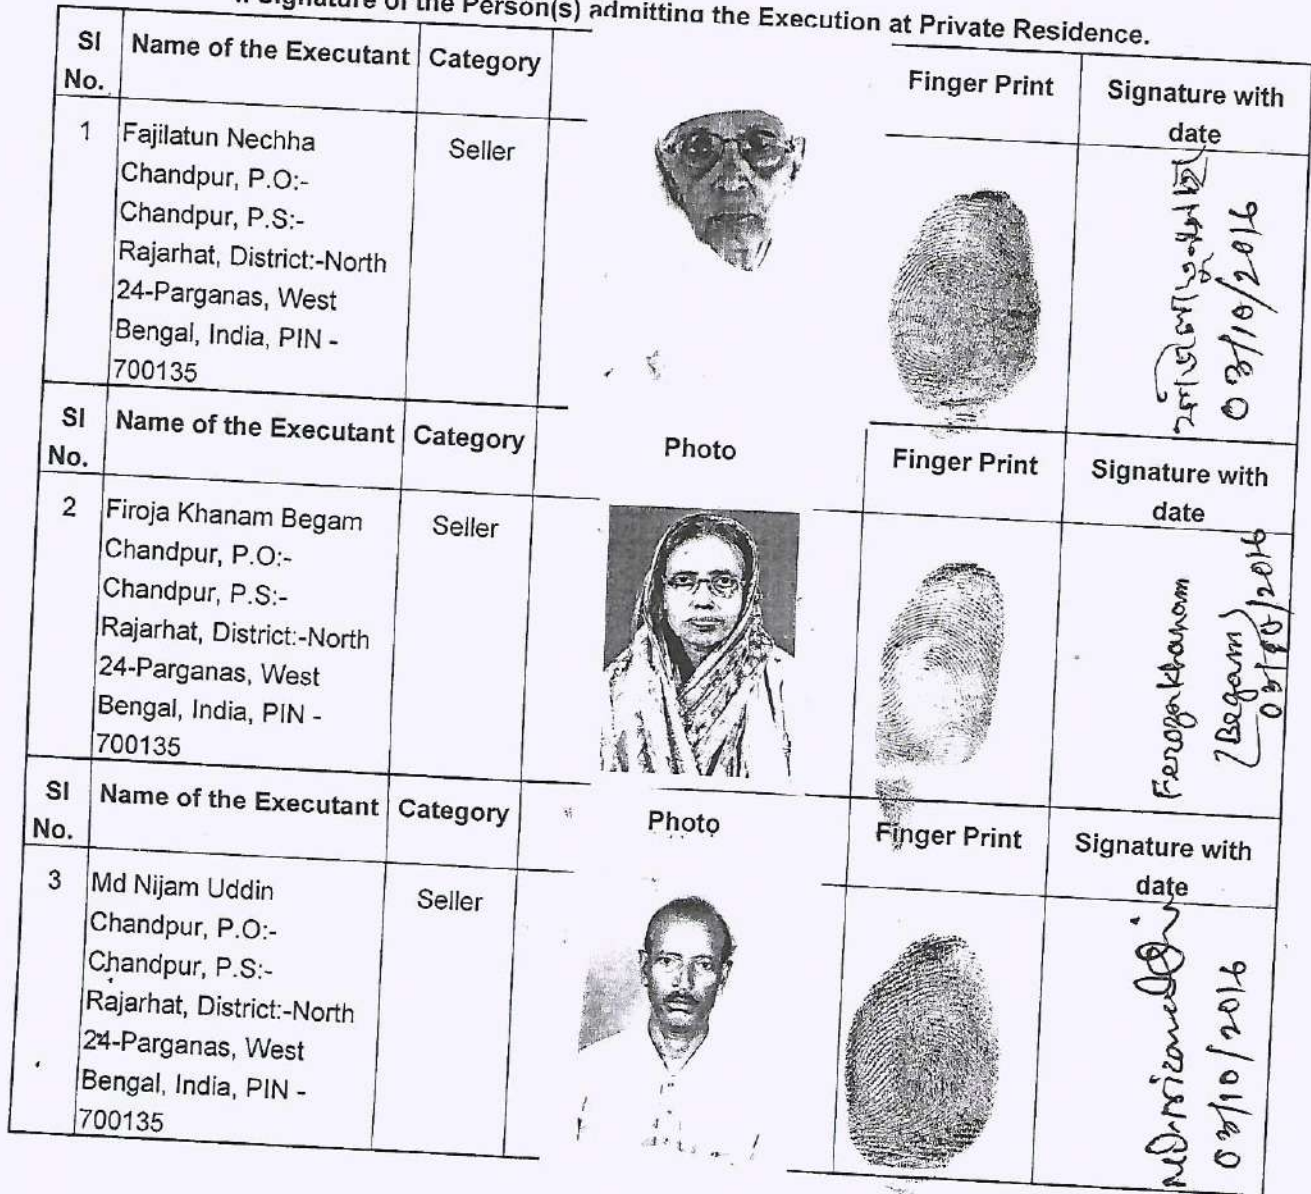 Signature of the Person(s) admitting the Execution at Private Residence.
Sl No. Name of the Executant Category Finger Print Signature with date
1 Fajilatun Nechha Seller
Chandpur, P.O:-
Chandpur, P.S:-
Rajarhat, District:-North
24-Parganas, West
Bengal, India, PIN -
700135
03/10/2016
Sl No. Name of the Executant Category Photo Finger Print Signature with date
2 Firoja Khanam Begam Seller
Chandpur, P.O:-
Chandpur, P.S:-
Rajarhat, District:-North
24-Parganas, West
Bengal, India, PIN -
700135
Feroza Khanam
(Begam)
03/10/2016
Sl No. Name of the Executant Category Photo Finger Print Signature with date
3 Md Nijam Uddin Seller
Chandpur, P.O:-
Chandpur, P.S:-
Rajarhat, District:-North
24-Parganas, West
Bengal, India, PIN -
700135
03/10/2016